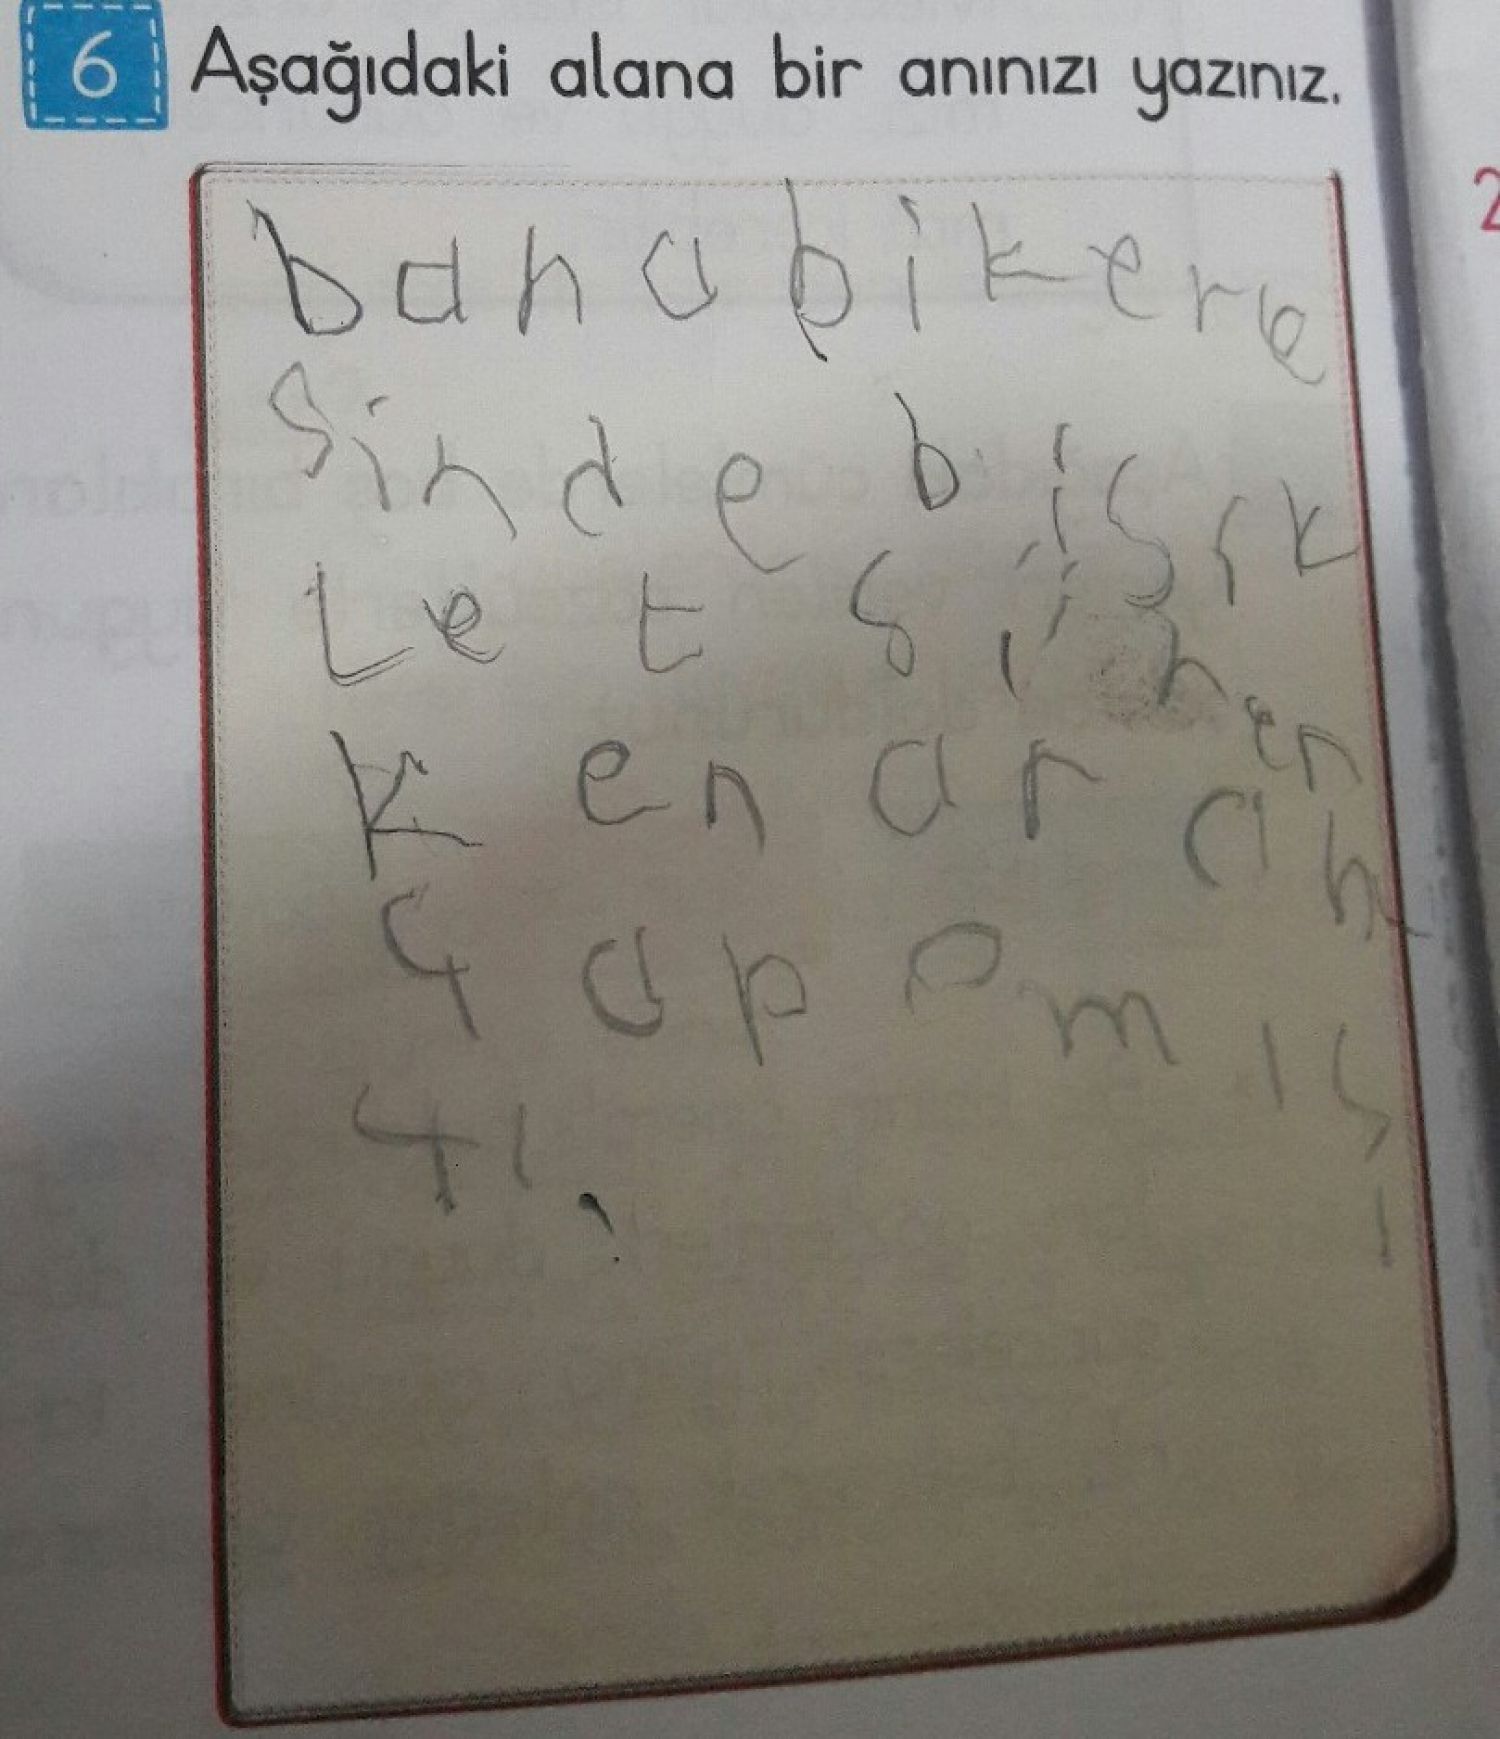 6 Aşağıdaki alana bir anınızı yazınız.
bana bi kere
sinde bisrk
Let sü ner
ken arah
4 apamıs
4ı.
2